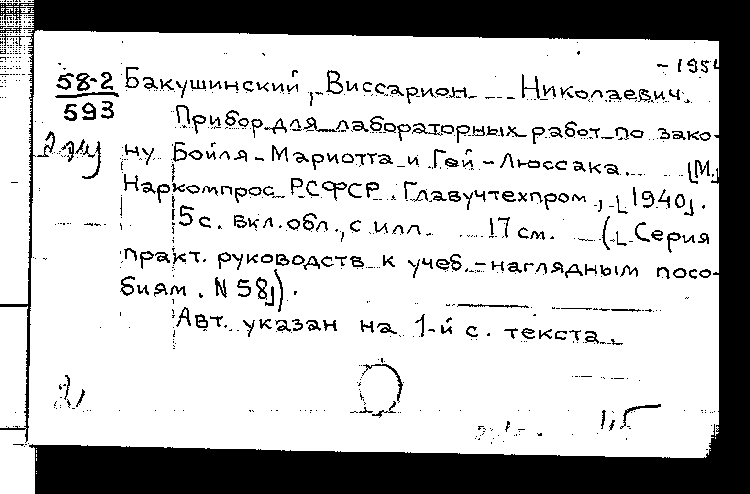 - 1954
58-2 Бакушинский, Виссарион Николаевич.
593
Прибор для лабораторных работ по зако-
2 экз ну Бойля-Мариотта и Гей-Люссака. [М.]
Наркомпрос РСФСР. Главучтехпром, [1940].
15 с. вкл. обл., с илл. 17 см. ([Серия
практ. руководств к учеб.-наглядным посо-
биям. N 58]).
Авт. указан на 1-й с. текста.